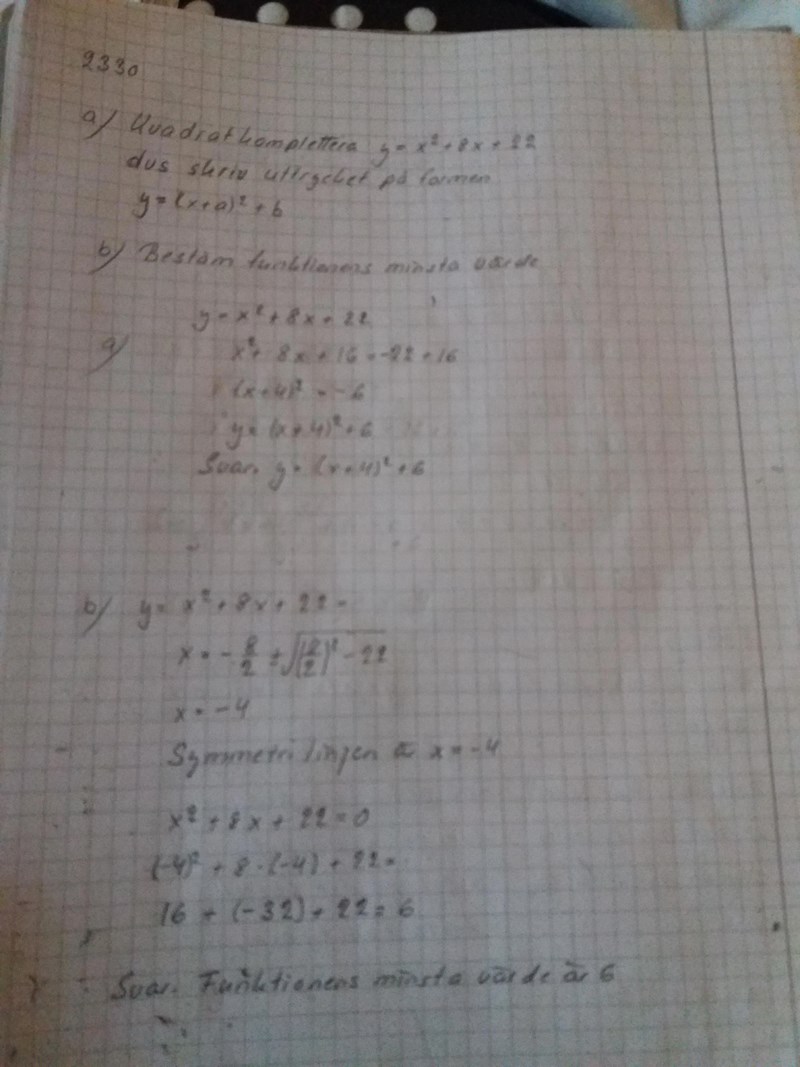 2330
a) Kvadratkomplettera y = x² + 8x + 22
dvs skriv uttrycket på formen
y = (x+a)² + b
b) Bestäm funktionens minsta värde
y = x² + 8x + 22
a) x² + 8x + 16 = -22 + 16
(x+4)² = -6
y = (x+4)² + 6
Svar. y = (x+4)² + 6
b) y = x² + 8x + 22 =
x = -8/2 ± √((8/2)² - 22)
x = -4
Symmetrilinjen är x = -4
x² + 8x + 22 = 0
(-4)² + 8·(-4) + 22 =
16 + (-32) + 22 = 6
Svar. Funktionens minsta värde är 6